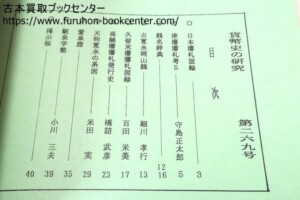 古本買取ブックセンター
https://www.furuhon-bookcenter.com/
貨幣史の研究 第二六九号
目次
○日本藩札図録 3
摩擦藩札考5 守島正太郎 5
銭名辞典 12
古寛永岡山銭 細川孝行 16
久留米藩札図録 百田米美 17
高鍋藩藩札発行史 樋詰武彦 23
元和寛永の系図 米田実 29
愛泉譜 39
敏泉学塾
掲示板 小川三夫 40